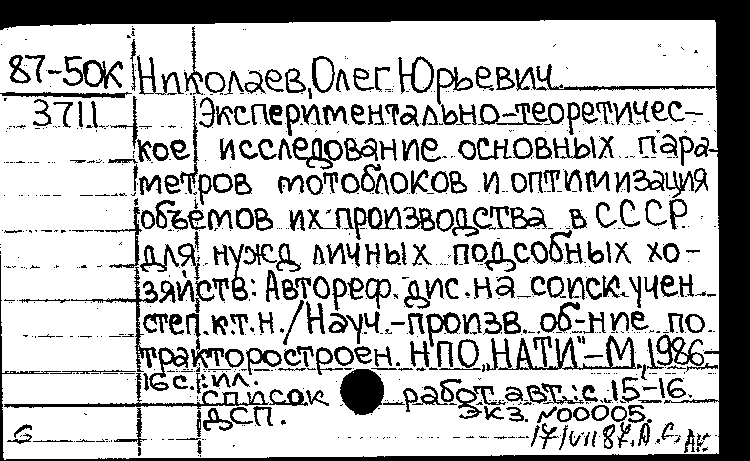 87-50К Николаев, Олег Юрьевич
3711 Экспериментально-теоретичес-
кое исследование основных пара-
метров мотоблоков и оптимизация
объемов их производства в СССР
для нужд личных подсобных хо-
зяйств: Автореф. дис. на соиск. учен.
степ. к.т.н. / Науч.-произв. об-ние по
тракторостроен. НПО „НАТИ".–М., 1986–
16 с.: ил.
список работ авт.: с. 15–16.
ДСП. Экз. №00005.
6 17/VII 87. АК